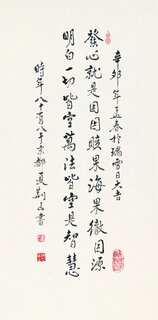 辛卯年孟春於瑞雪日大吉
發心就是因因賅果海果徹因源
明白一切皆空萬法皆空是智慧
時年八十有八于京都夏荆山書